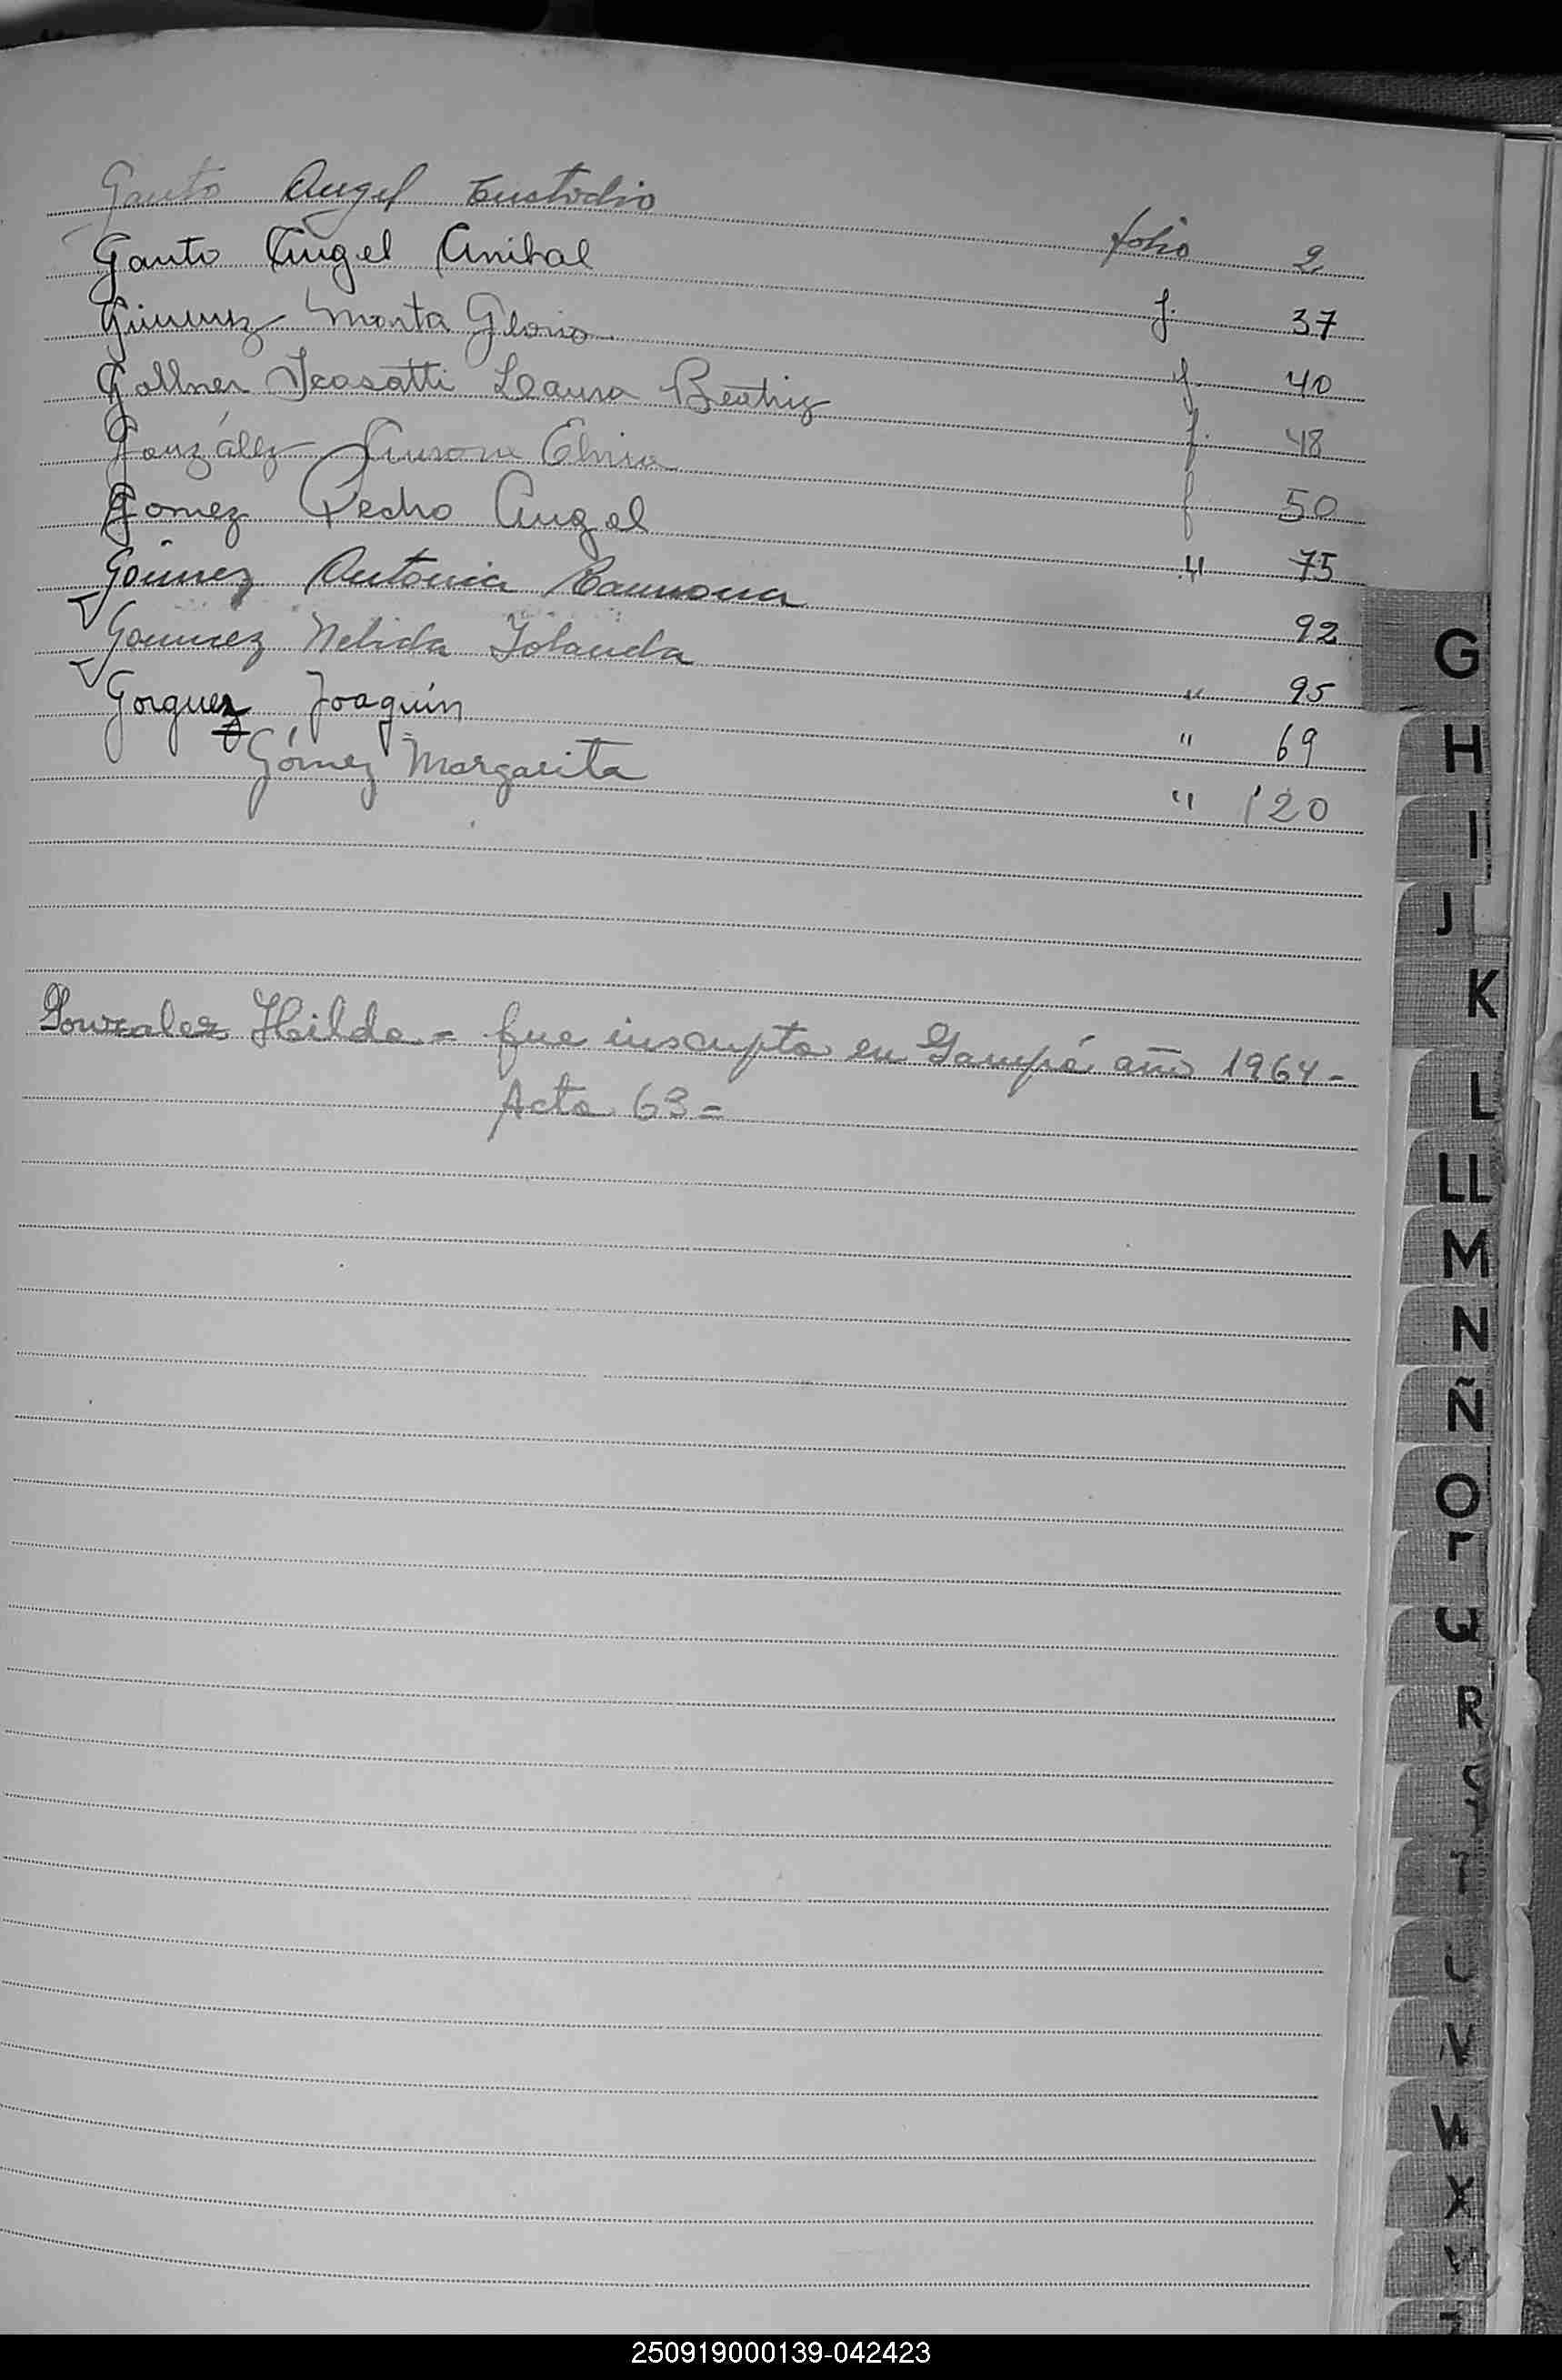 Gauto Angel Custodio folio 2
Gauto Angel Anibal f. 37
Gimenez Marta Gloria f. 40
Gallner Leasatti Laura Beatriz f. 48
González Aurora Elvira f 50
Gomez Pedro Angel " 75
Gómez Antonia Ramona 92
Gomez Nelida Yolanda " 95
Gorguez Joaquín " 69
Gómez Margarita " 120
Gonzalez Hilda = fue inscripta en Garupá año 1964 -
Acta 63 =
G
H
I
J
K
L
LL
M
N
Ñ
O
Q
R
T
V
W
X
250919000139-042423